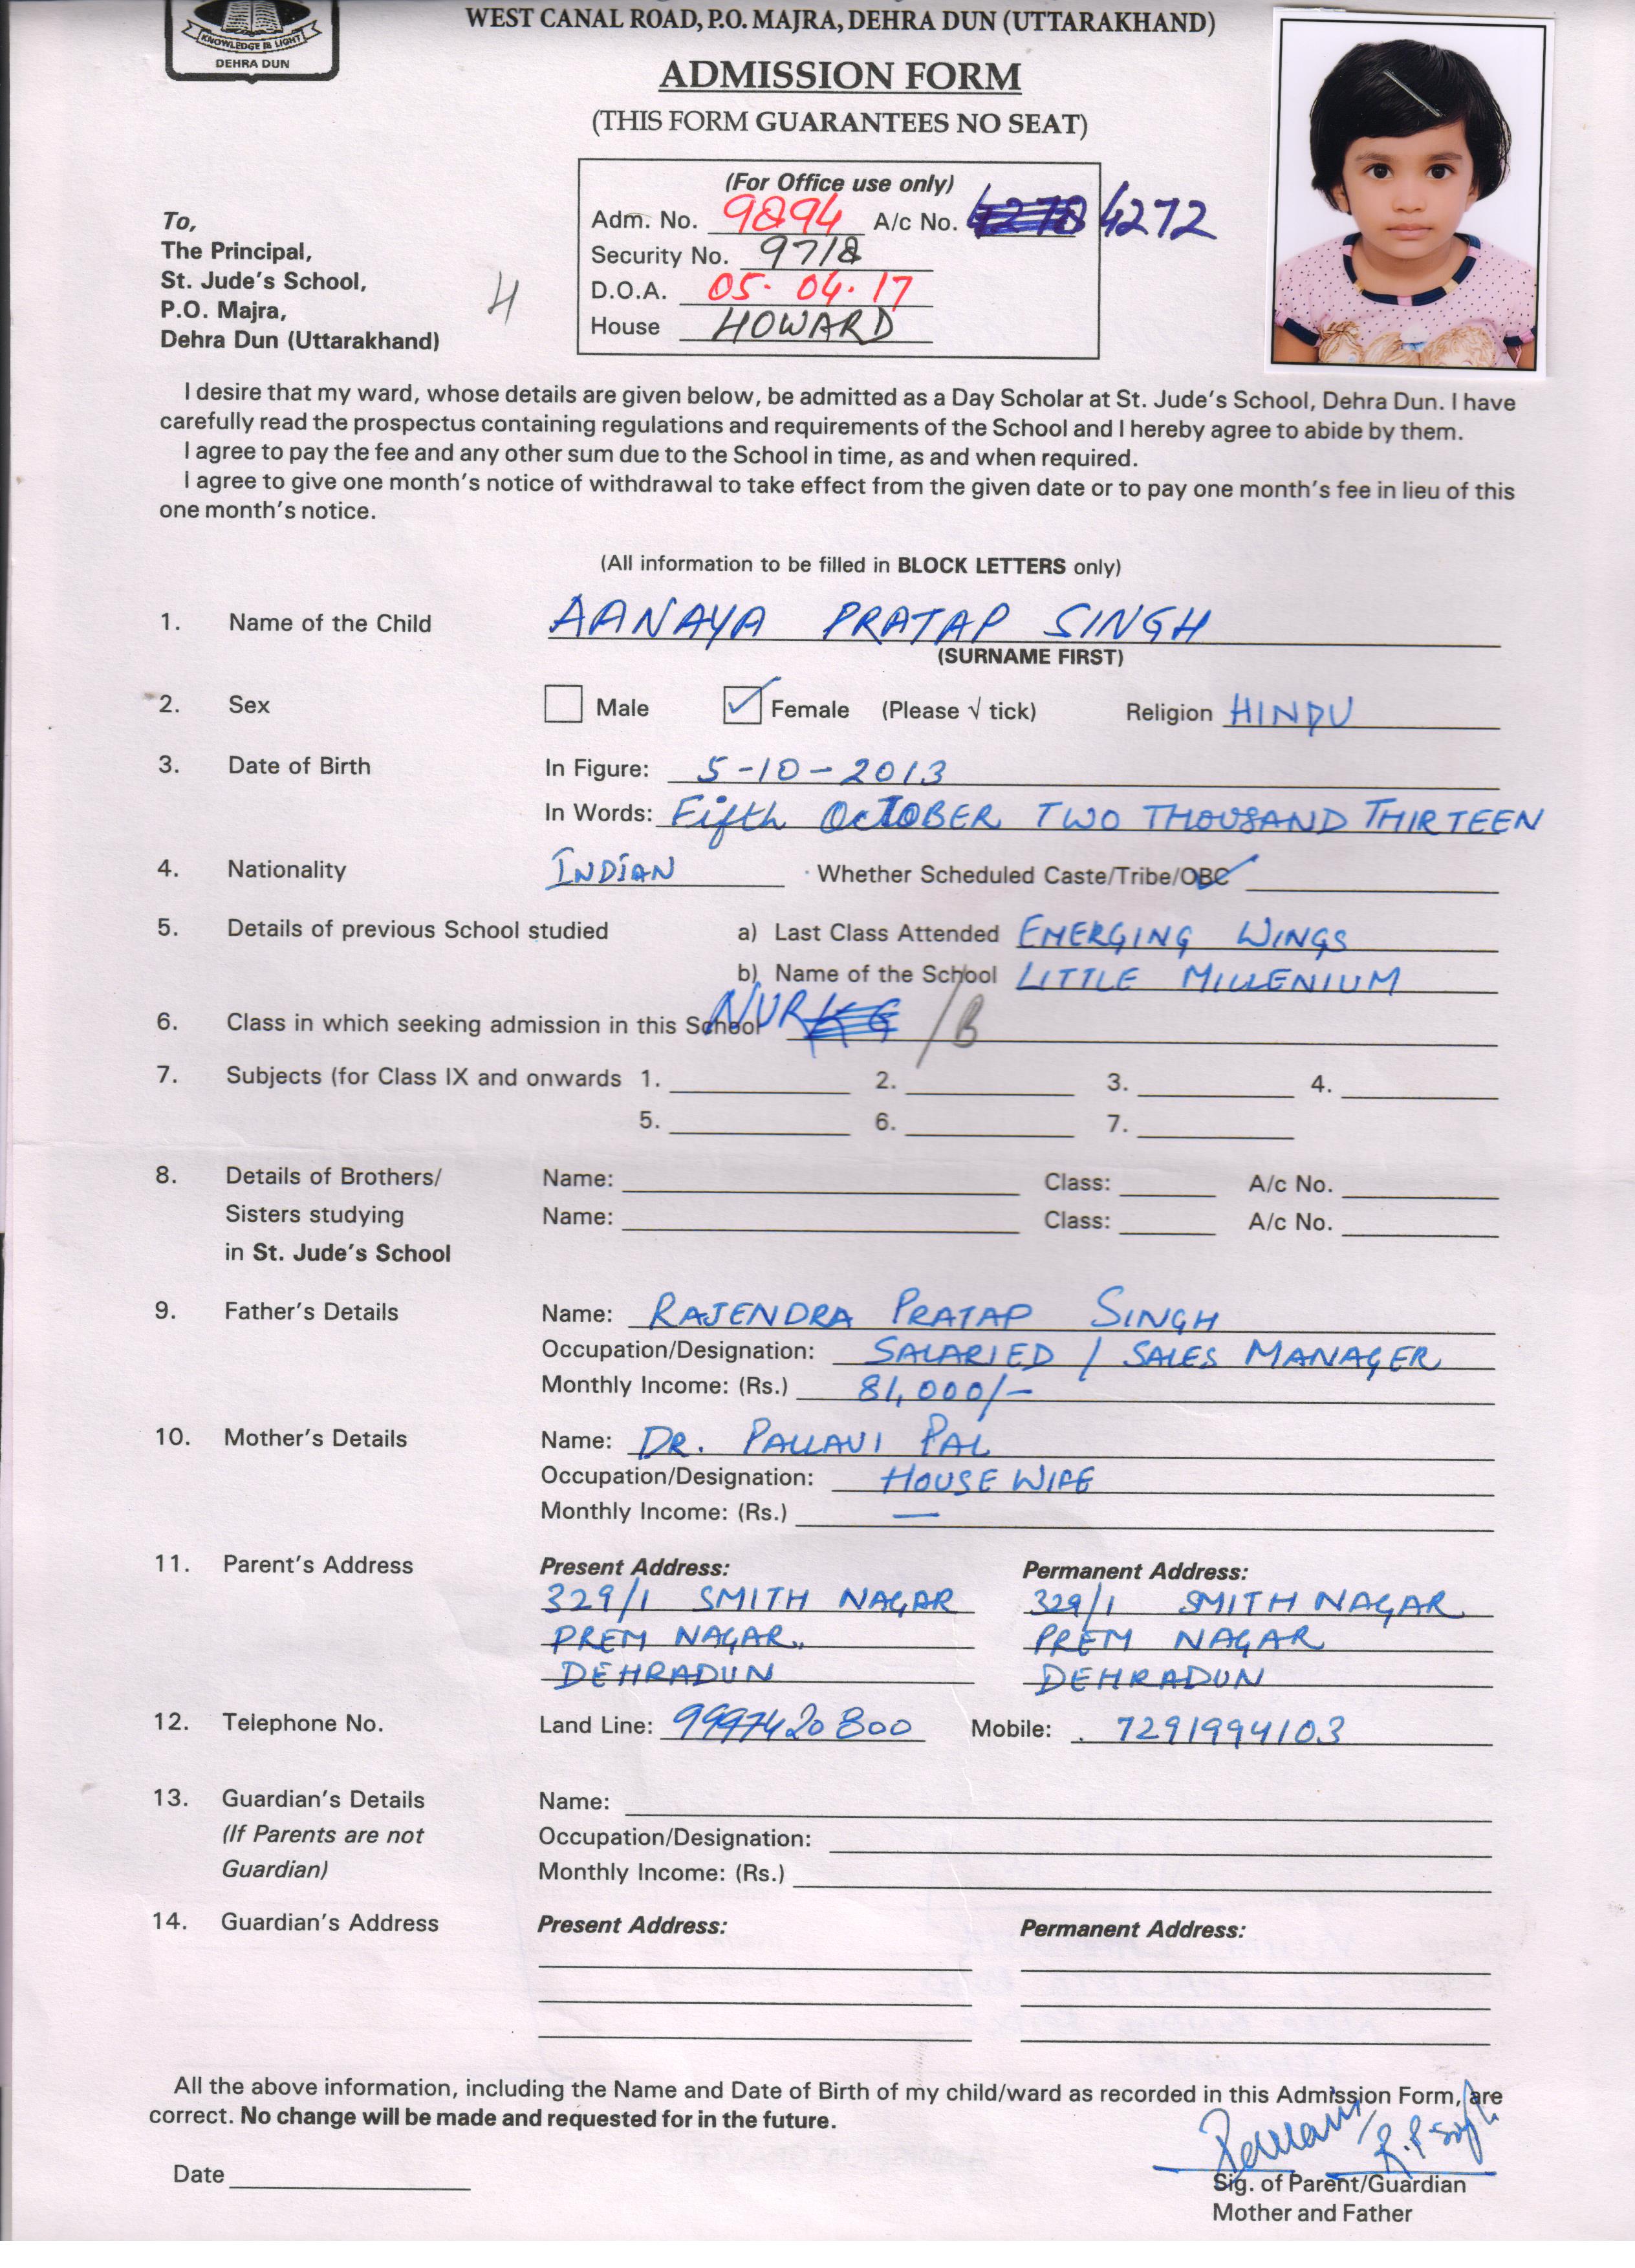 KNOWLEDGE IS LIGHT
DEHRA DUN
WEST CANAL ROAD, P.O. MAJRA, DEHRA DUN (UTTARAKHAND)
ADMISSION FORM
(THIS FORM GUARANTEES NO SEAT)
(For Office use only)
Adm. No. 9894 A/c No. 4272
Security No. 9718
D.O.A. 05. 04. 17
House HOWARD
To,
The Principal,
St. Jude's School,
P.O. Majra,
Dehra Dun (Uttarakhand)
I desire that my ward, whose details are given below, be admitted as a Day Scholar at St. Jude's School, Dehra Dun. I have
carefully read the prospectus containing regulations and requirements of the School and I hereby agree to abide by them.
I agree to pay the fee and any other sum due to the School in time, as and when required.
I agree to give one month's notice of withdrawal to take effect from the given date or to pay one month's fee in lieu of this
one month's notice.
(All information to be filled in BLOCK LETTERS only)
1. Name of the Child AANAYA PRATAP SINGH
(SURNAME FIRST)
2. Sex Male Female (Please √ tick) Religion HINDU
3. Date of Birth In Figure: 5-10-2013
In Words: Fifth OCTOBER TWO THOUSAND THIRTEEN
4. Nationality INDIAN Whether Scheduled Caste/Tribe/OBC
5. Details of previous School studied a) Last Class Attended EMERGING WINGS
b) Name of the School LITTLE MILLENIUM
6. Class in which seeking admission in this School NUR /B
7. Subjects (for Class IX and onwards 1. 2. 3. 4.
5. 6. 7.
8. Details of Brothers/ Name: Class: A/c No.
Sisters studying Name: Class: A/c No.
in St. Jude's School
9. Father's Details Name: RAJENDRA PRATAP SINGH
Occupation/Designation: SALARIED / SALES MANAGER
Monthly Income: (Rs.) 81,000/-
10. Mother's Details Name: DR. PALLAVI PAL
Occupation/Designation: HOUSE WIFE
Monthly Income: (Rs.) —
11. Parent's Address Present Address: Permanent Address:
329/1 SMITH NAGAR 329/1 SMITH NAGAR
PREM NAGAR. PREM NAGAR
DEHRADUN DEHRADUN
12. Telephone No. Land Line: 9997420800 Mobile: 7291994103
13. Guardian's Details Name:
(If Parents are not Occupation/Designation:
Guardian) Monthly Income: (Rs.)
14. Guardian's Address Present Address: Permanent Address:
All the above information, including the Name and Date of Birth of my child/ward as recorded in this Admission Form, are
correct. No change will be made and requested for in the future.
Date
Sig. of Parent/Guardian
Mother and Father